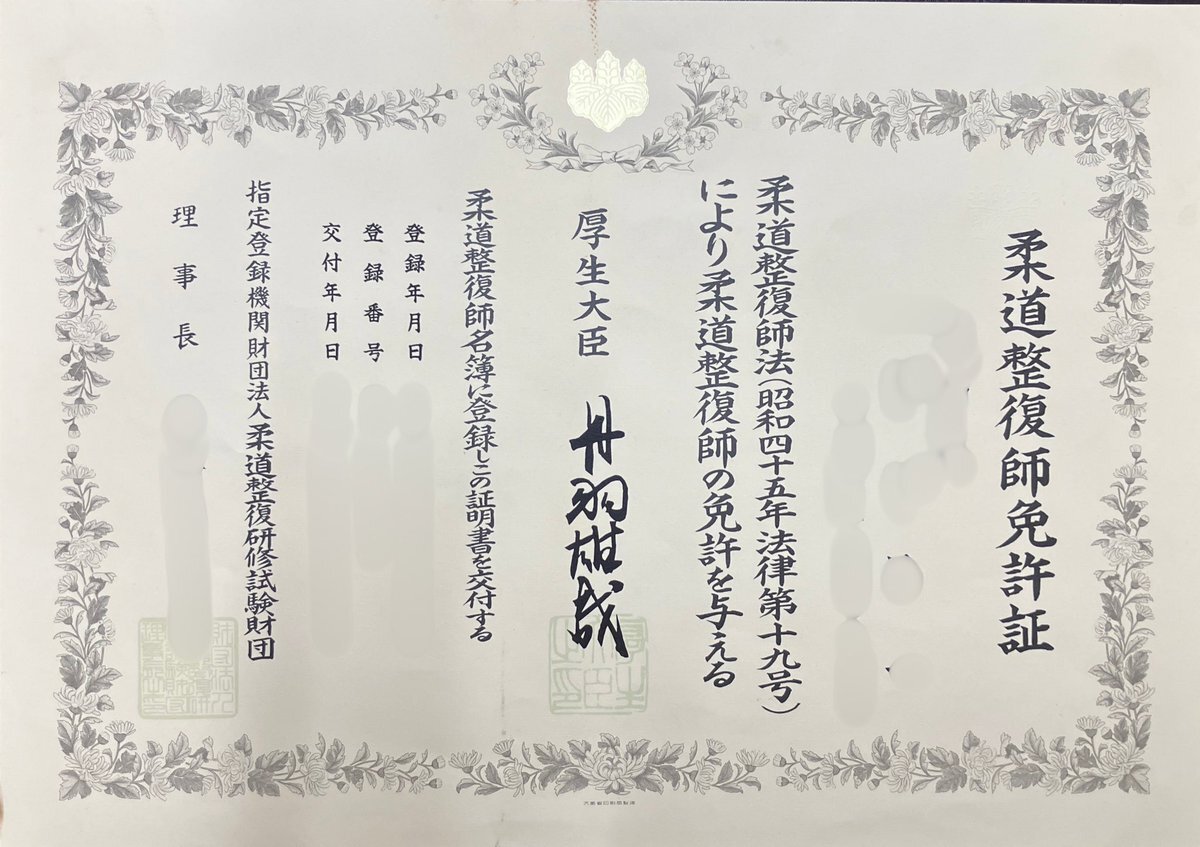 柔道整復師免許証
柔道整復師法(昭和四十五年法律第十九号)
により柔道整復師の免許を与える
厚生大臣 丹羽雄哉
柔道整復師名簿に登録しこの証明書を交付する
登録年月日
登録番号
交付年月日
指定登録機関財団法人柔道整復研修試験財団
理事長